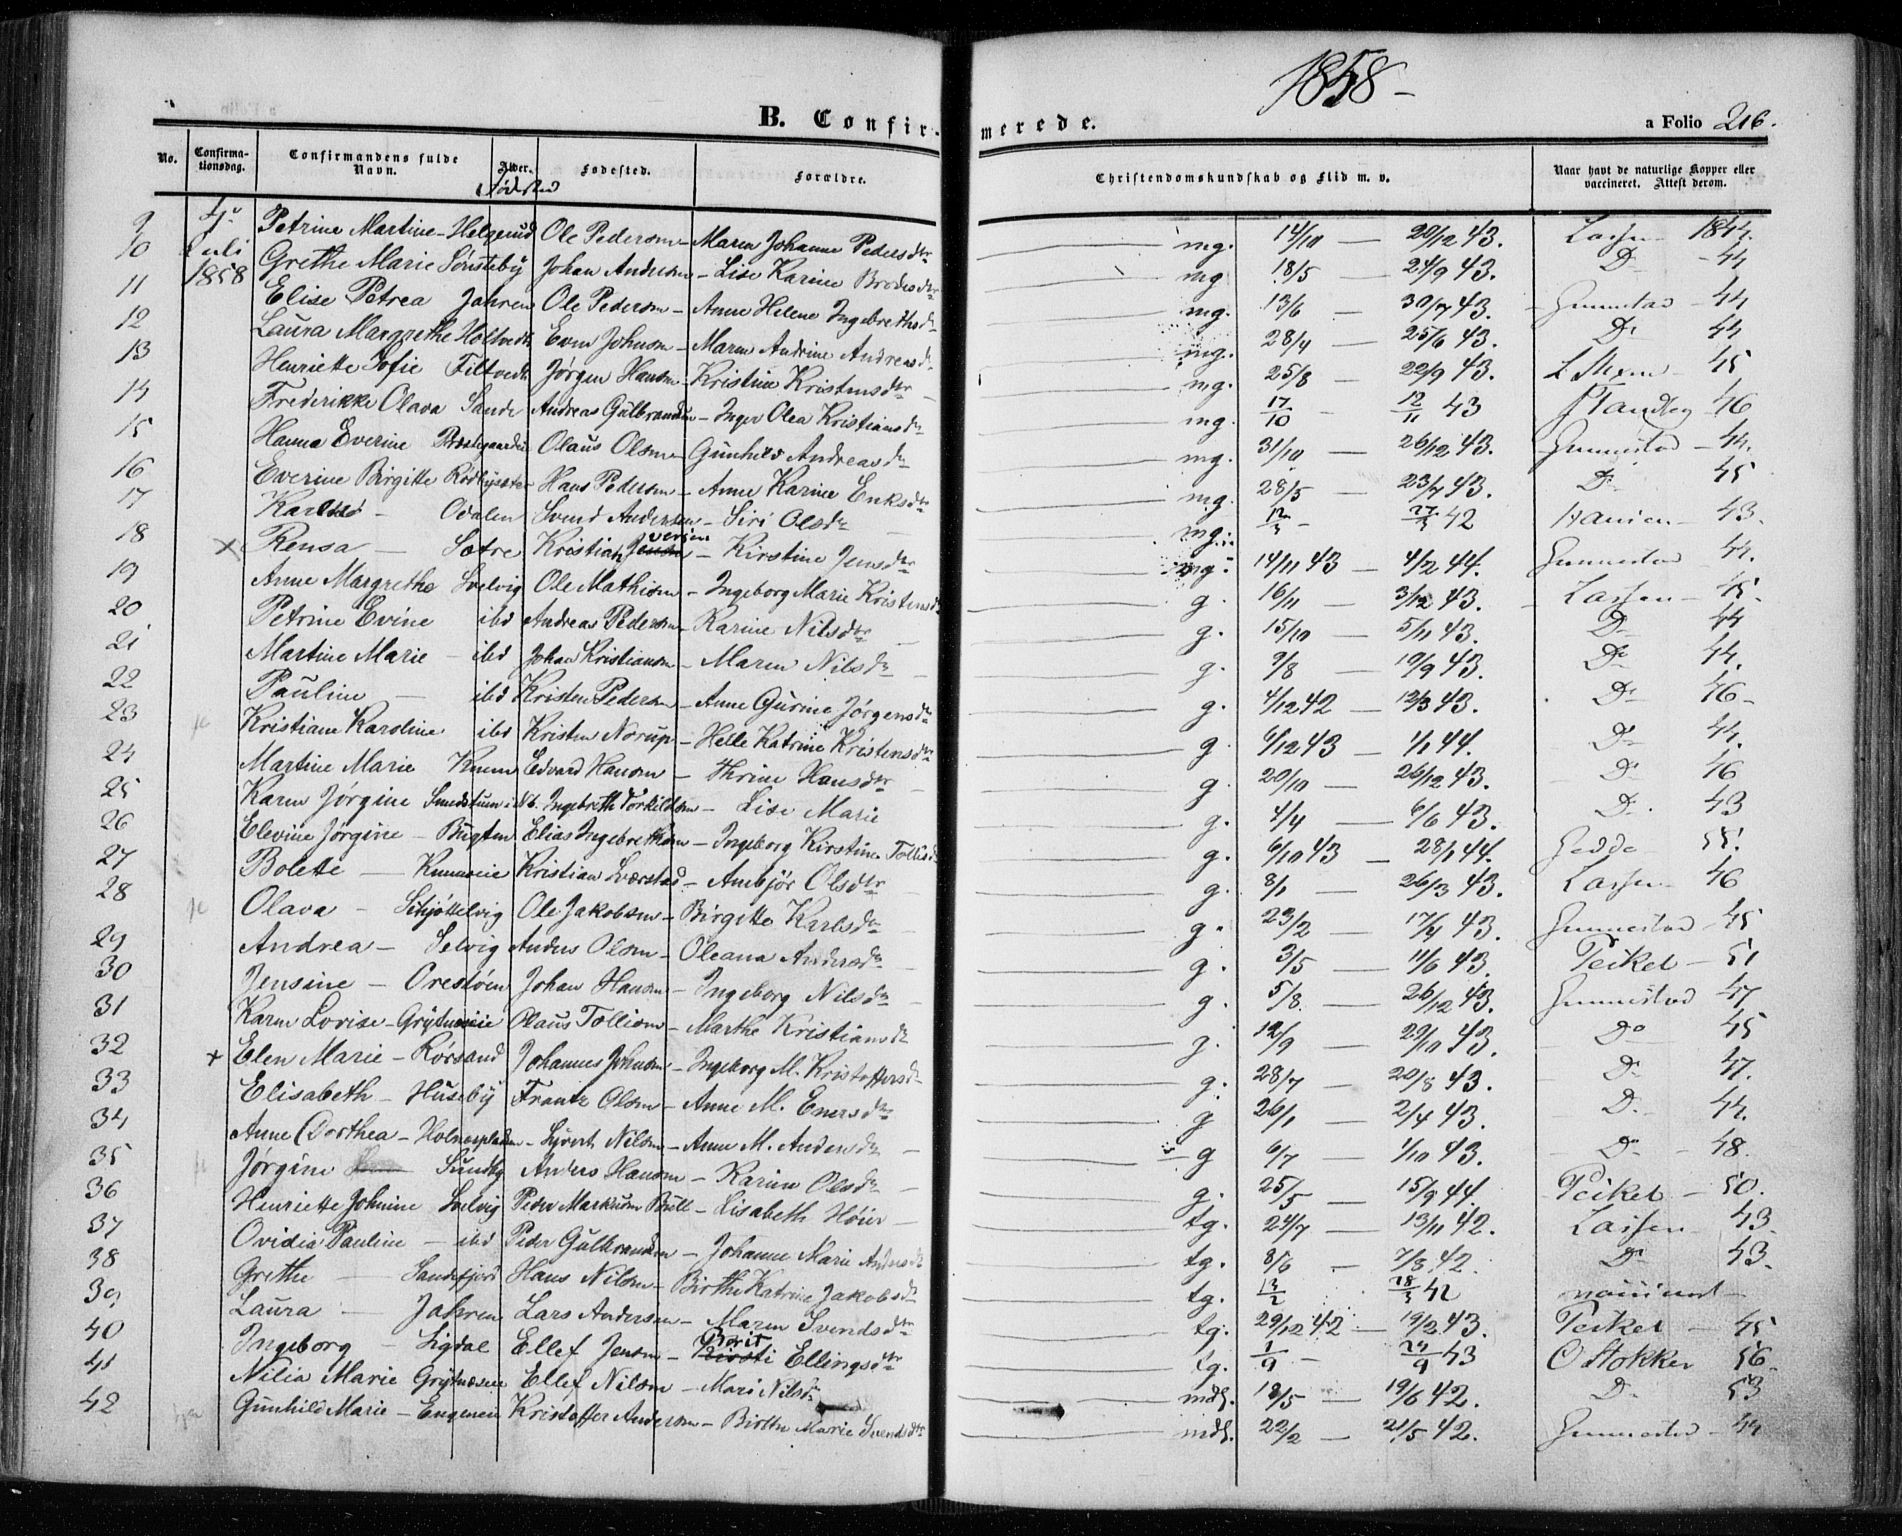 1858
B. Confirmerede.
a Folio 216.
No. Confirmationsdag. Confirmandens fulde Navn. Alder. Fødested. Forældre. Christendomskundskab og Flid m. v. Naar havt de naturlige Kopper eller vaccineret. Attest derom.
Fødested
9 4de Juli 1858 Petrine Martine Helgerud Ole Pedersen Maren Johanne Pedersdtr mg. 14/10 — 20/12 43. Lassen 1844.
10 Grethe Marie Sønsteby Johan Andersen Lise Karine mg 18/5 — 24/9 43. Do 44
11 Elise Petrea Jahren Ole Pedersen Anne Helene Ingebrethsdr mg. 13/6 — 30/7 43. Gunnestad 44
12 Laura Margrethe Holtvedt Even Johnsen Maren Andrine Andreasdr mg. 28/4 — 25/6 43. Do 44
13 Henriette Sofie Filtvedt Jørgen Hansen Kristine Kristensdtr mg. 25/8 — 22/9 43. 45
14 Frederikke Olava Sande Andreas Gulbrandsen Inger Olea Kristiansdr mg. 17/10 — 12/11 43 46
15 Hanna Everine Olaus Olsen Gunhild Andreasdr mg. 31/10 — 26/12 43. Gunnestad 44.
16 Everine Birgitte Hans Pedersen Anne Karine Eriksdtr mg. 28/5 — 23/7 43. Do 45
17 Odalen Svend Andersen Siri Olsdr mg. 12/3 — 27/3 42 Hansen 43.
18 Rensa Sætre Kristian Iversen Kirstine Jensdtr mg. 14/11 43 — 4/2 44. Gunnestad 44.
19 Anne Margrethe Svelvig Ole Mathisen Ingeborg Marie Kristensdr g. 16/11 — 3/12 43. Lassen 45.
20 Petrine Evine ibd Andreas Pedersen Karine Nilsdtr g. 15/10 — 5/11 43. Do 44
21 Martine Marie ibd Johan Kristiansen Maren Nilsdr g. 9/8 — 19/9 43. Do 44.
22 Pauline ibd Kristen Pedersen Anne Gurine Jørgensdr g. 4/12 42 — 12/3 43. Do 46
23 Kristiane Karoline ibd Kristen Norup Helle Katrine Kristensdr g. 6/12 43 — 1/1 44. Do 44.
24 Martine Marie Edvard Hansen Thrine Hansdtr g. 20/10 — 26/12 43. Do 46
25 Karen Jørgine Ingebreth Torkildsen Lise Marie g. 4/4 — 6/6 43. Do 43
26 Elevine Jørgine Bugten Elias Ingebrethsen Ingeborg Kirstine g. 6/10 43 — 28/1 44. Gedde 55.
27 Bolette Kristian Sværstad Ambjör Olsdtr g. 8/1 — 26/3 43. Lassen 46
28 Olava Schjøttelvig Ole Jakobsen Birgitte Karlsdr g. 23/2 — 17/4 43. Gunnestad 45
29 Andrea Selvig Anders Olsen Oleana Andersdr g. 3/5 — 11/6 43. Teiket 51
30 Jensine Orestøen Johan Hansen Ingeborg Nilsdr g. 5/8. — 26/12 43. Gunnestad 47
31 Karen Lovise Grytneseie Olaus Tollisen Marthe Kristiansdr g. 12/9 — 29/10 43. Do 45
32 Elen Marie Rörsand Johannes Johnsen Ingeborg M. Kristoffersdr g. 28/7 — 20/8 43. Do 47.
33 Elisabeth Huseby Frantz Olsen Anne M. Enersdtr g 26/1 — 2/4 43. Do 44.
34 Anne Dorthea Holmespladsen Syvert Nilsen Anne M. Andersdr g 6/7 — 1/10 43. Do 48.
35 Jørgine Sundby Anders Hansen Karine Olsdr g. 25/5 — 15/9 44. Teiket 50.
36 Henriette Johnine Svelvig Peder Markusen Bull Lisabeth Höier tg. 24/7 — 13/11 42. Lassen 43
37 Ovidia Pauline ibd Peder Gulbrandsen Johanne Marie Andersdr tg. 8/6 — 7/8 42. Do 43.
38 Grethe Sandefjord Hans Nilsen Birthe Katrine Jakobsdr tg. 13/2 28/3 42
39 Laura Jahren Lars Andersen Maren Svendsdtr tg. 29/12 42 — 19/2 43. Teiket 45
40 Ingeborg Sigdal Ellef Jensen Berit Ellingsdtr tg. 1/9 — 24/9 43 O Stokker 56
41 Nilia Marie Grytneseie Ellef Nilsen Mari Nilsdr mdl. 18/5 — 19/6 42. Do 53
42 Gunhild Marie Engeneie Kristoffer Andersen Birthe Marie Svendsdtr mdl. 22/2 — 21/5 42. Gunnestad 44